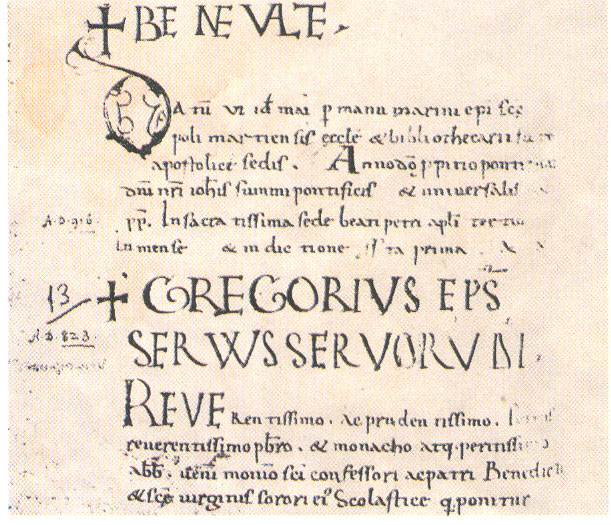 ✝ BENE VALTE.
DATū VI id mai p manu marini epi sce
poli martiensis eccle & bibliothecarii
apostolice sedis. Anno dō ppitio ponti
dni nri iohis summi pontificis & universalis
A.D. 916 pp. In sacra tissima sede beati petri apli
In mense & in dic tione prima
13 ✝ GREGORIUS EPS
A.D. 823 SERVVS SERVORVM DI.
REVE Ren tissimo. Ac pruden tissimo.
reuerentissimo pbro. & monacho atq. peritissi
abb. uen monio sci confessori ac patri Benedic
& sce uirginis sorori ei' Scolastice q ponitur